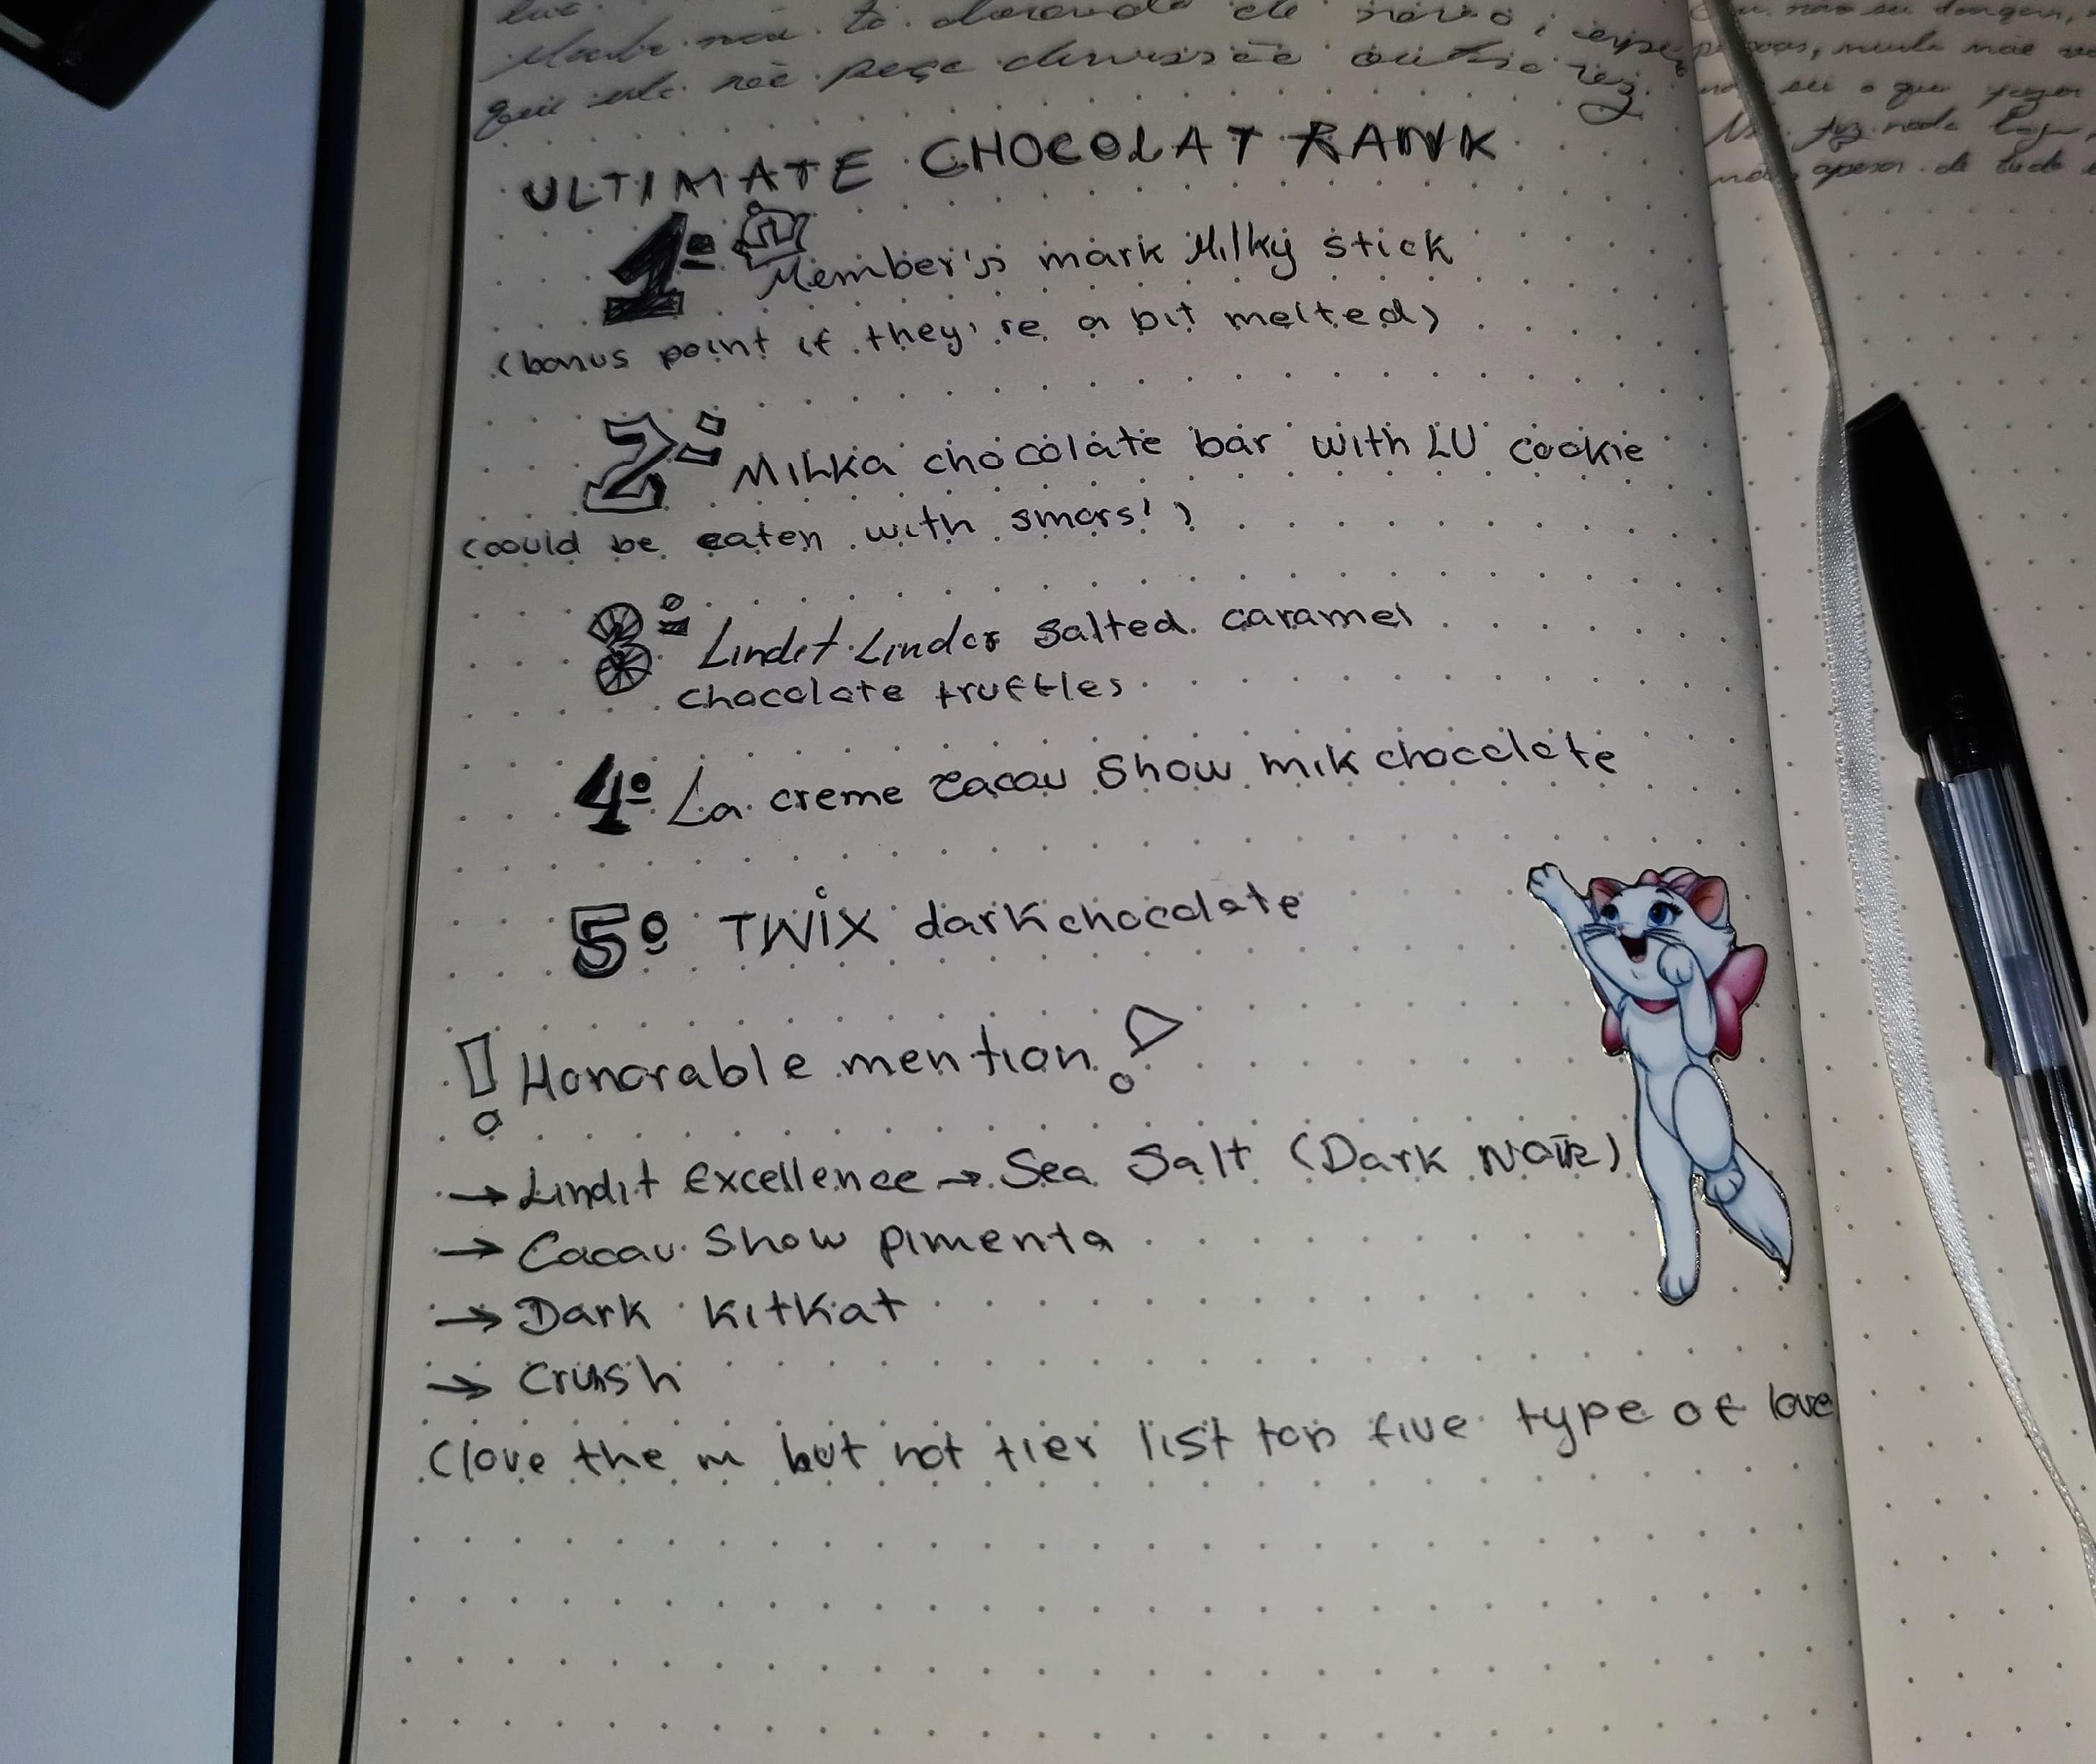 não peça
ULTIMATE CHOCOLAT RANK
1º Member's mark Milky stick
(bonus point if they're a bit melted)
2º Milka chocolate bar with LU cookie
(could be eaten with smors!)
3º Lindit Linder salted caramel
chocolate truffles
4º La creme Cacau Show mik chocolate
5º TWIX dark chocolate
! Honorable mention !
→ Lindit Excellence → Sea Salt (Dark NOIR)
→ Cacau Show pimenta
→ Dark KitKat
→ Crush
(love the m but not tier list top five type of love
sei o que fazer
apesar de tudo